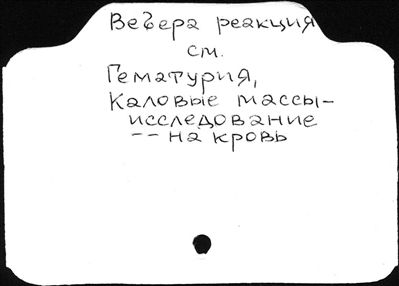 Вебера реакция
см.
Гематурия,
Каловые массы–
исследование
-- на кровь